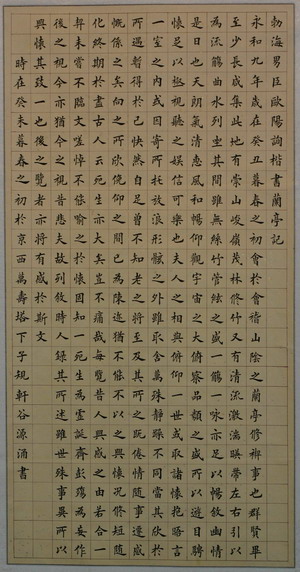 勃海男臣歐陽詢楷書蘭亭記
永和九年歲在癸丑暮春之初會於會稽山陰之蘭亭修禊事也群賢畢
至少長咸集此地有崇山峻嶺茂林修竹又有清流激湍暎帶左右引以
為流觴曲水列坐其間雖無絲竹管絃之盛一觴一詠亦足以暢敘幽情
是日也天朗氣清惠風和暢仰觀宇宙之大俯察品類之盛所以遊目騁
懷足以極視聽之娛信可樂也夫人之相與俯仰一世或取諸懷抱晤言
一室之內或因寄所托放浪形骸之外雖取舍萬殊靜躁不同當其欣於
所遇暫得於己快然自足曾不知老之將至及其所之既倦情隨事遷感
慨係之矣向之所欣俛仰之間已為陳迹猶不能不以之興懷况修短隨
化終期於盡古人云死生亦大矣豈不痛哉每覽昔人興感之由若合一
契未嘗不臨文嗟悼不能喻之於懷固知一死生為虛誕齊彭殤為妄作
後之視今亦猶今之視昔悲夫故列敘時人錄其所述雖世殊事異所以
興懷其致一也後之覽者亦將有感於斯文
時在癸未暮春之初於京西萬壽塔下子規軒谷源涌書